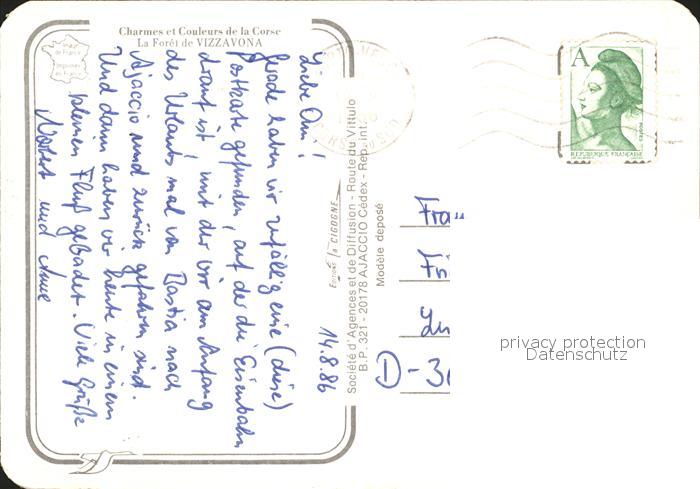 Charmes et Couleurs de la Corse
La Forêt de VIZZAVONA
Image de France
Imprimée en France
14.8.86
Liebe Omi!
Gerade haben wir zufällig eine (diese)
Postkarte gefunden, auf der die Eisenbahn
drauf ist mit der wir am Anfang
des Urlaubs mal von Bastia nach
Ajaccio und zurück gefahren sind.
Und dann haben wir heute in einem
kleinen Fluß gebadet. Viele Grüße
und Anne
EDITIONS "LA CIGOGNE"
Société d'Agences et de Diffusion - Route du Vittulo
B.P. 321 - 20178 AJACCIO Cédex - Rep. int.
Modèle déposé
A
REPUBLIQUE FRANÇAISE
POSTES
Fra
D-3
privacy protection
Datenschutz